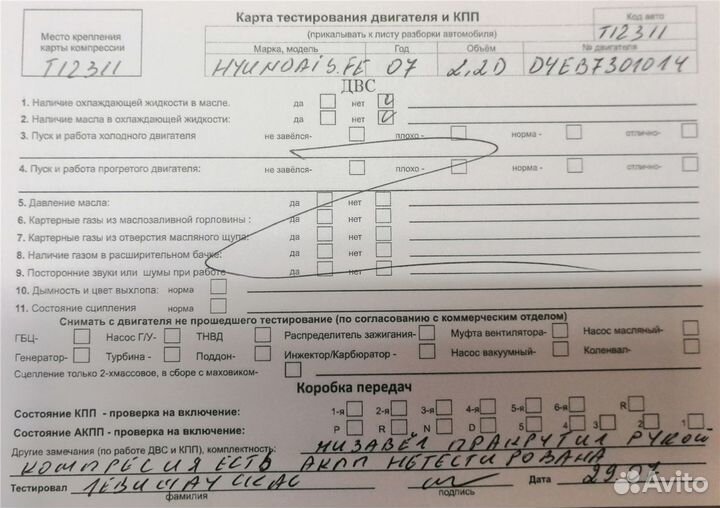 Карта тестирования двигателя и КПП
Место крепления карты компрессии
Т12311
(прикалывать к листу разборки автомобиля)
Код авто
Т12311
Марка, модель Год Объём № двигателя
HYUNDAI S.FE 07 2,2D D4EB7301014
ДВС
1. Наличие охлаждающей жидкости в масле. да нет
2. Наличие масла в охлаждающей жидкости: да нет
3. Пуск и работа холодного двигателя не завёлся- плохо- норма - отлично-
4. Пуск и работа прогретого двигателя: не завёлся- плохо- норма - отлично-
5. Давление масла: да нет
6. Картерные газы из маслозаливной горловины : да нет
7. Картерные газы из отверстия масляного щупа: да нет
8. Наличие газов в расширительном бачке: да нет
9. Посторонние звуки или шумы при работе да нет
10. Дымность и цвет выхлопа: норма
11. Состояние сципления норма
Снимать с двигателя не прошедшего тестирование (по согласованию с коммерческим отделом)
ГБЦ- Насос Г/У- ТНВД Распределитель зажигания- Муфта вентилятора- Насос масляный-
Генератор- Турбина - Поддон- Инжектор/Карбюратор - Насос вакуумный- Коленвал-
Сцепление только 2-хмассовое, в сборе с маховиком-
Коробка передач
Состояние КПП - проверка на включение: 1-я 2-я 3-я 4-я 5-я 6-я R
Состояние АКПП - проверка на включение: P R N D 5 4 3 2 1
Другие замечания (по работе ДВС и КПП), комплектность: НИЗАВЁЛ ПРАКРУТИЛ РУКОЙ
КОМПРЕСИЯ ЕСТЬ АКПП НЕТЕСТИРОВАНА
Тестировал Дата 29.07
фамилия подпись
Avito